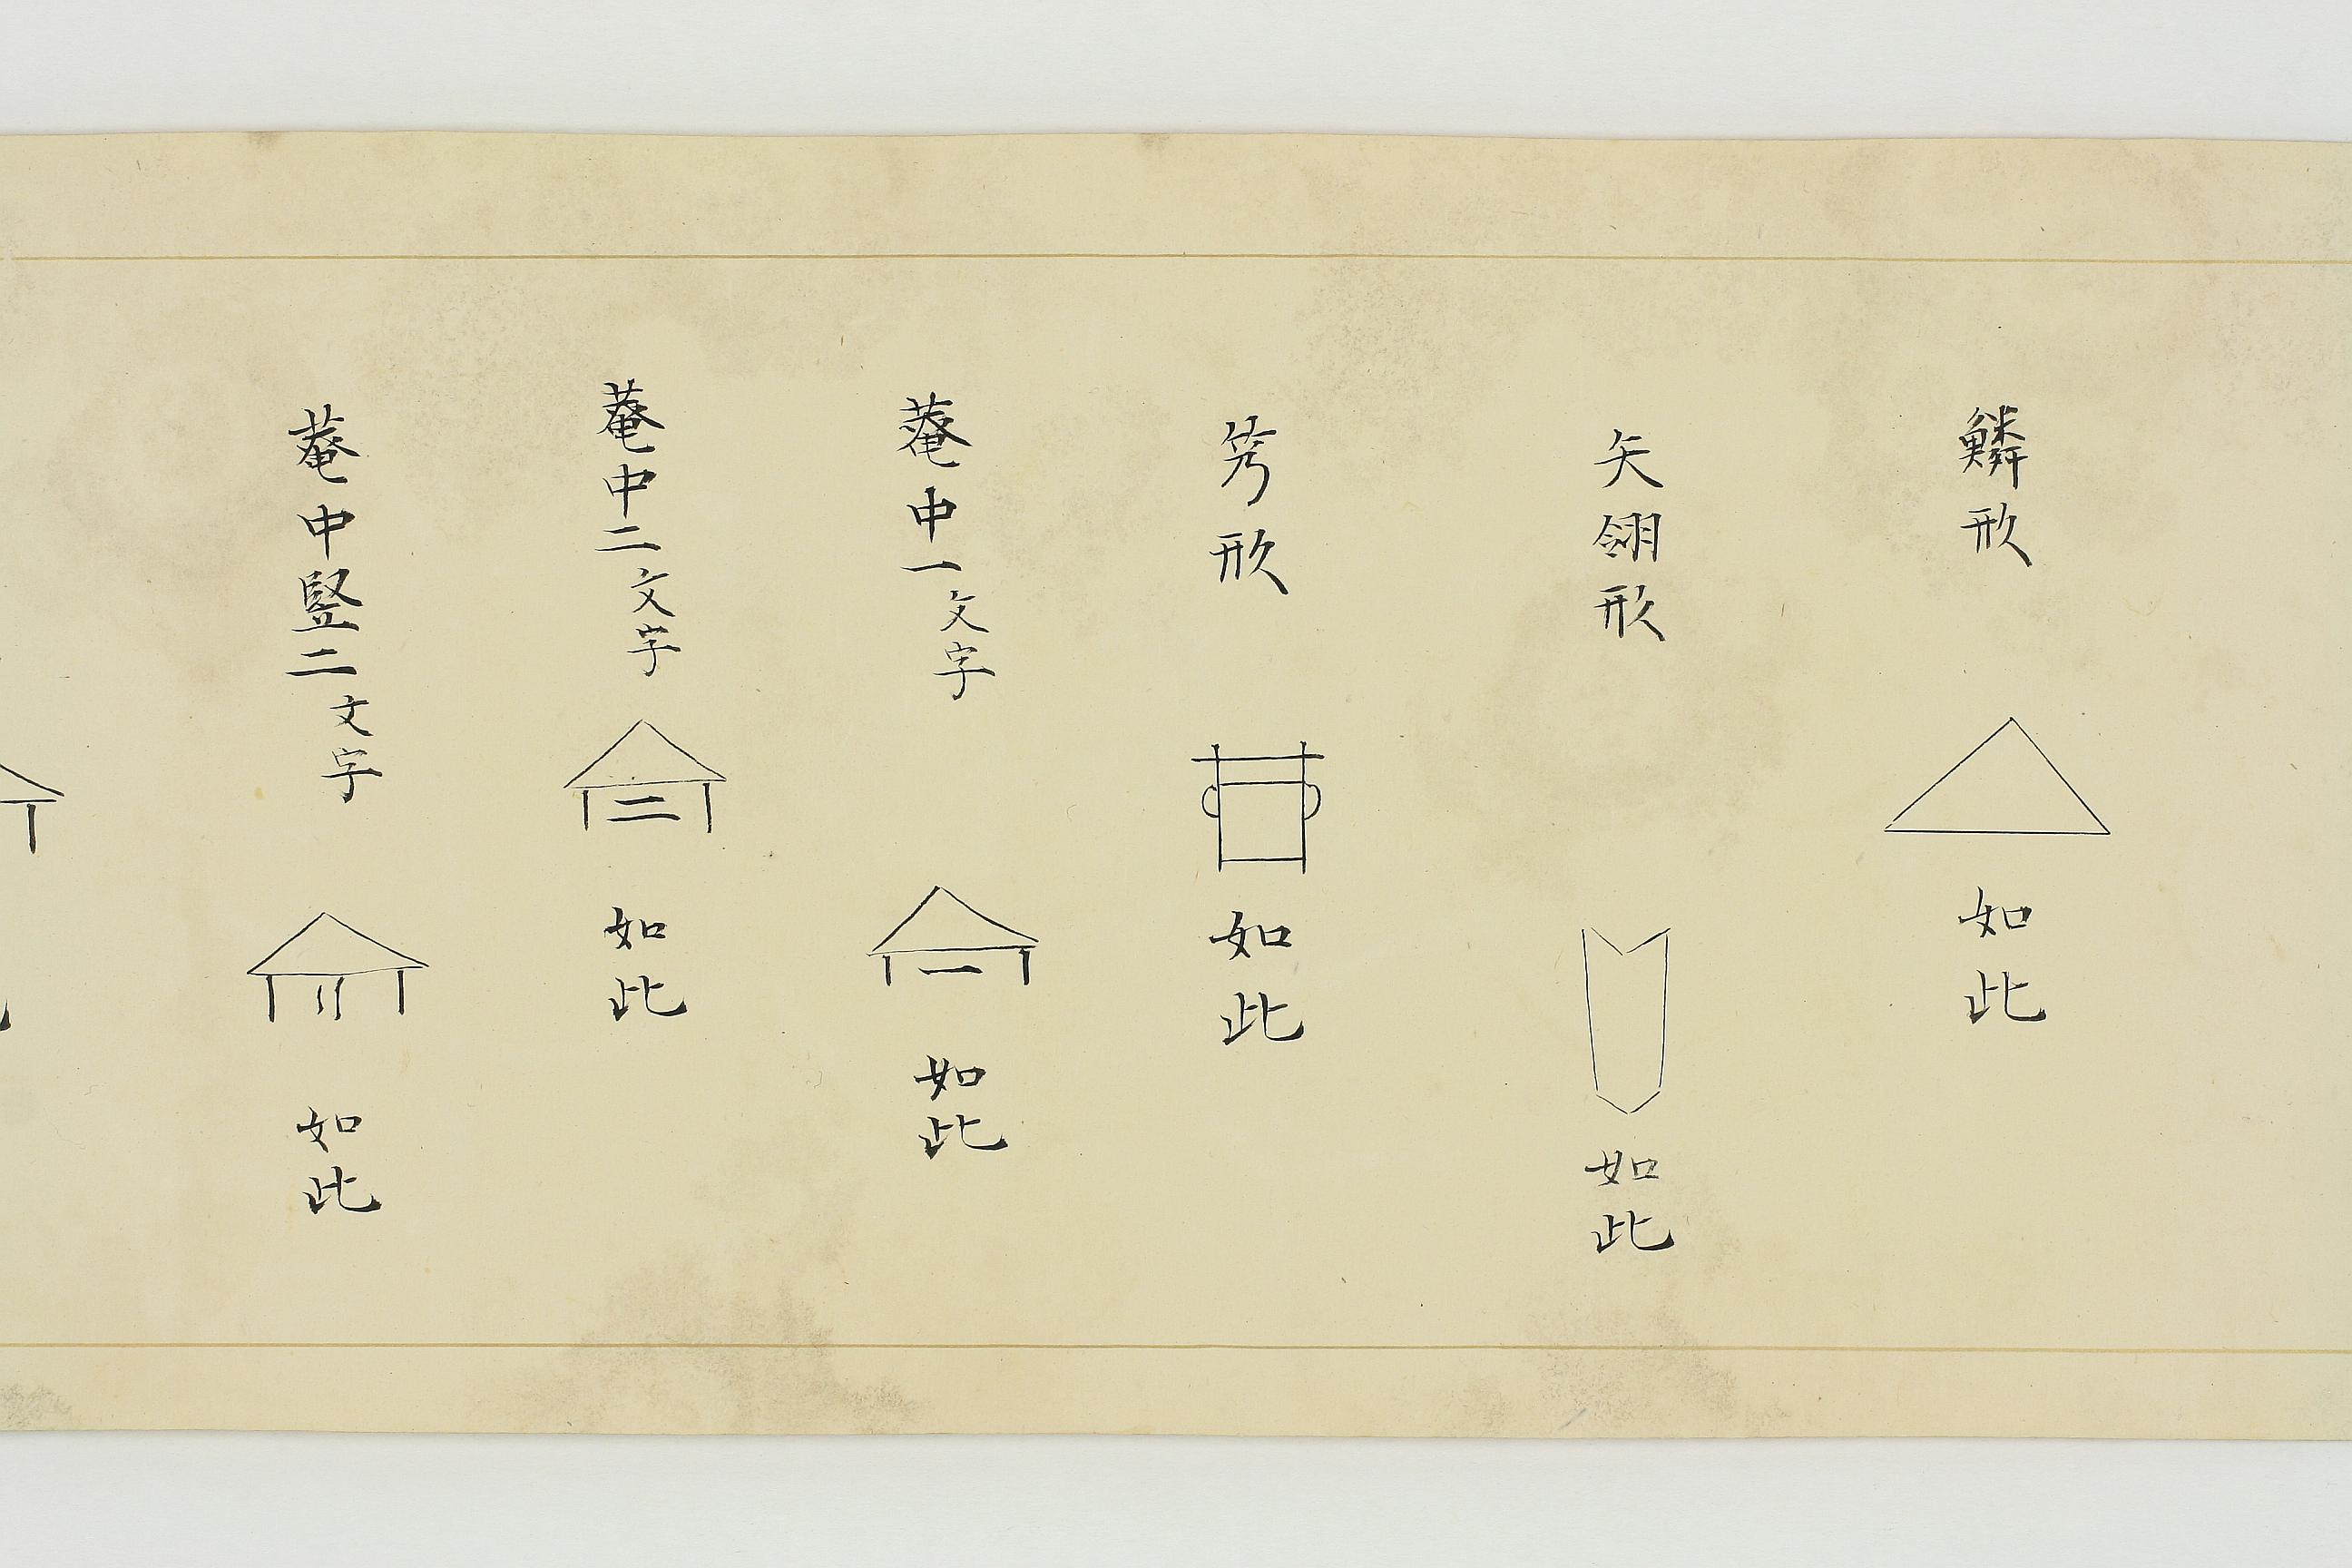 鱗形
如此
矢翎形
如此
笒形
如此
菴中一文字
如此
菴中二文字
如此
菴中竪二文字
如此